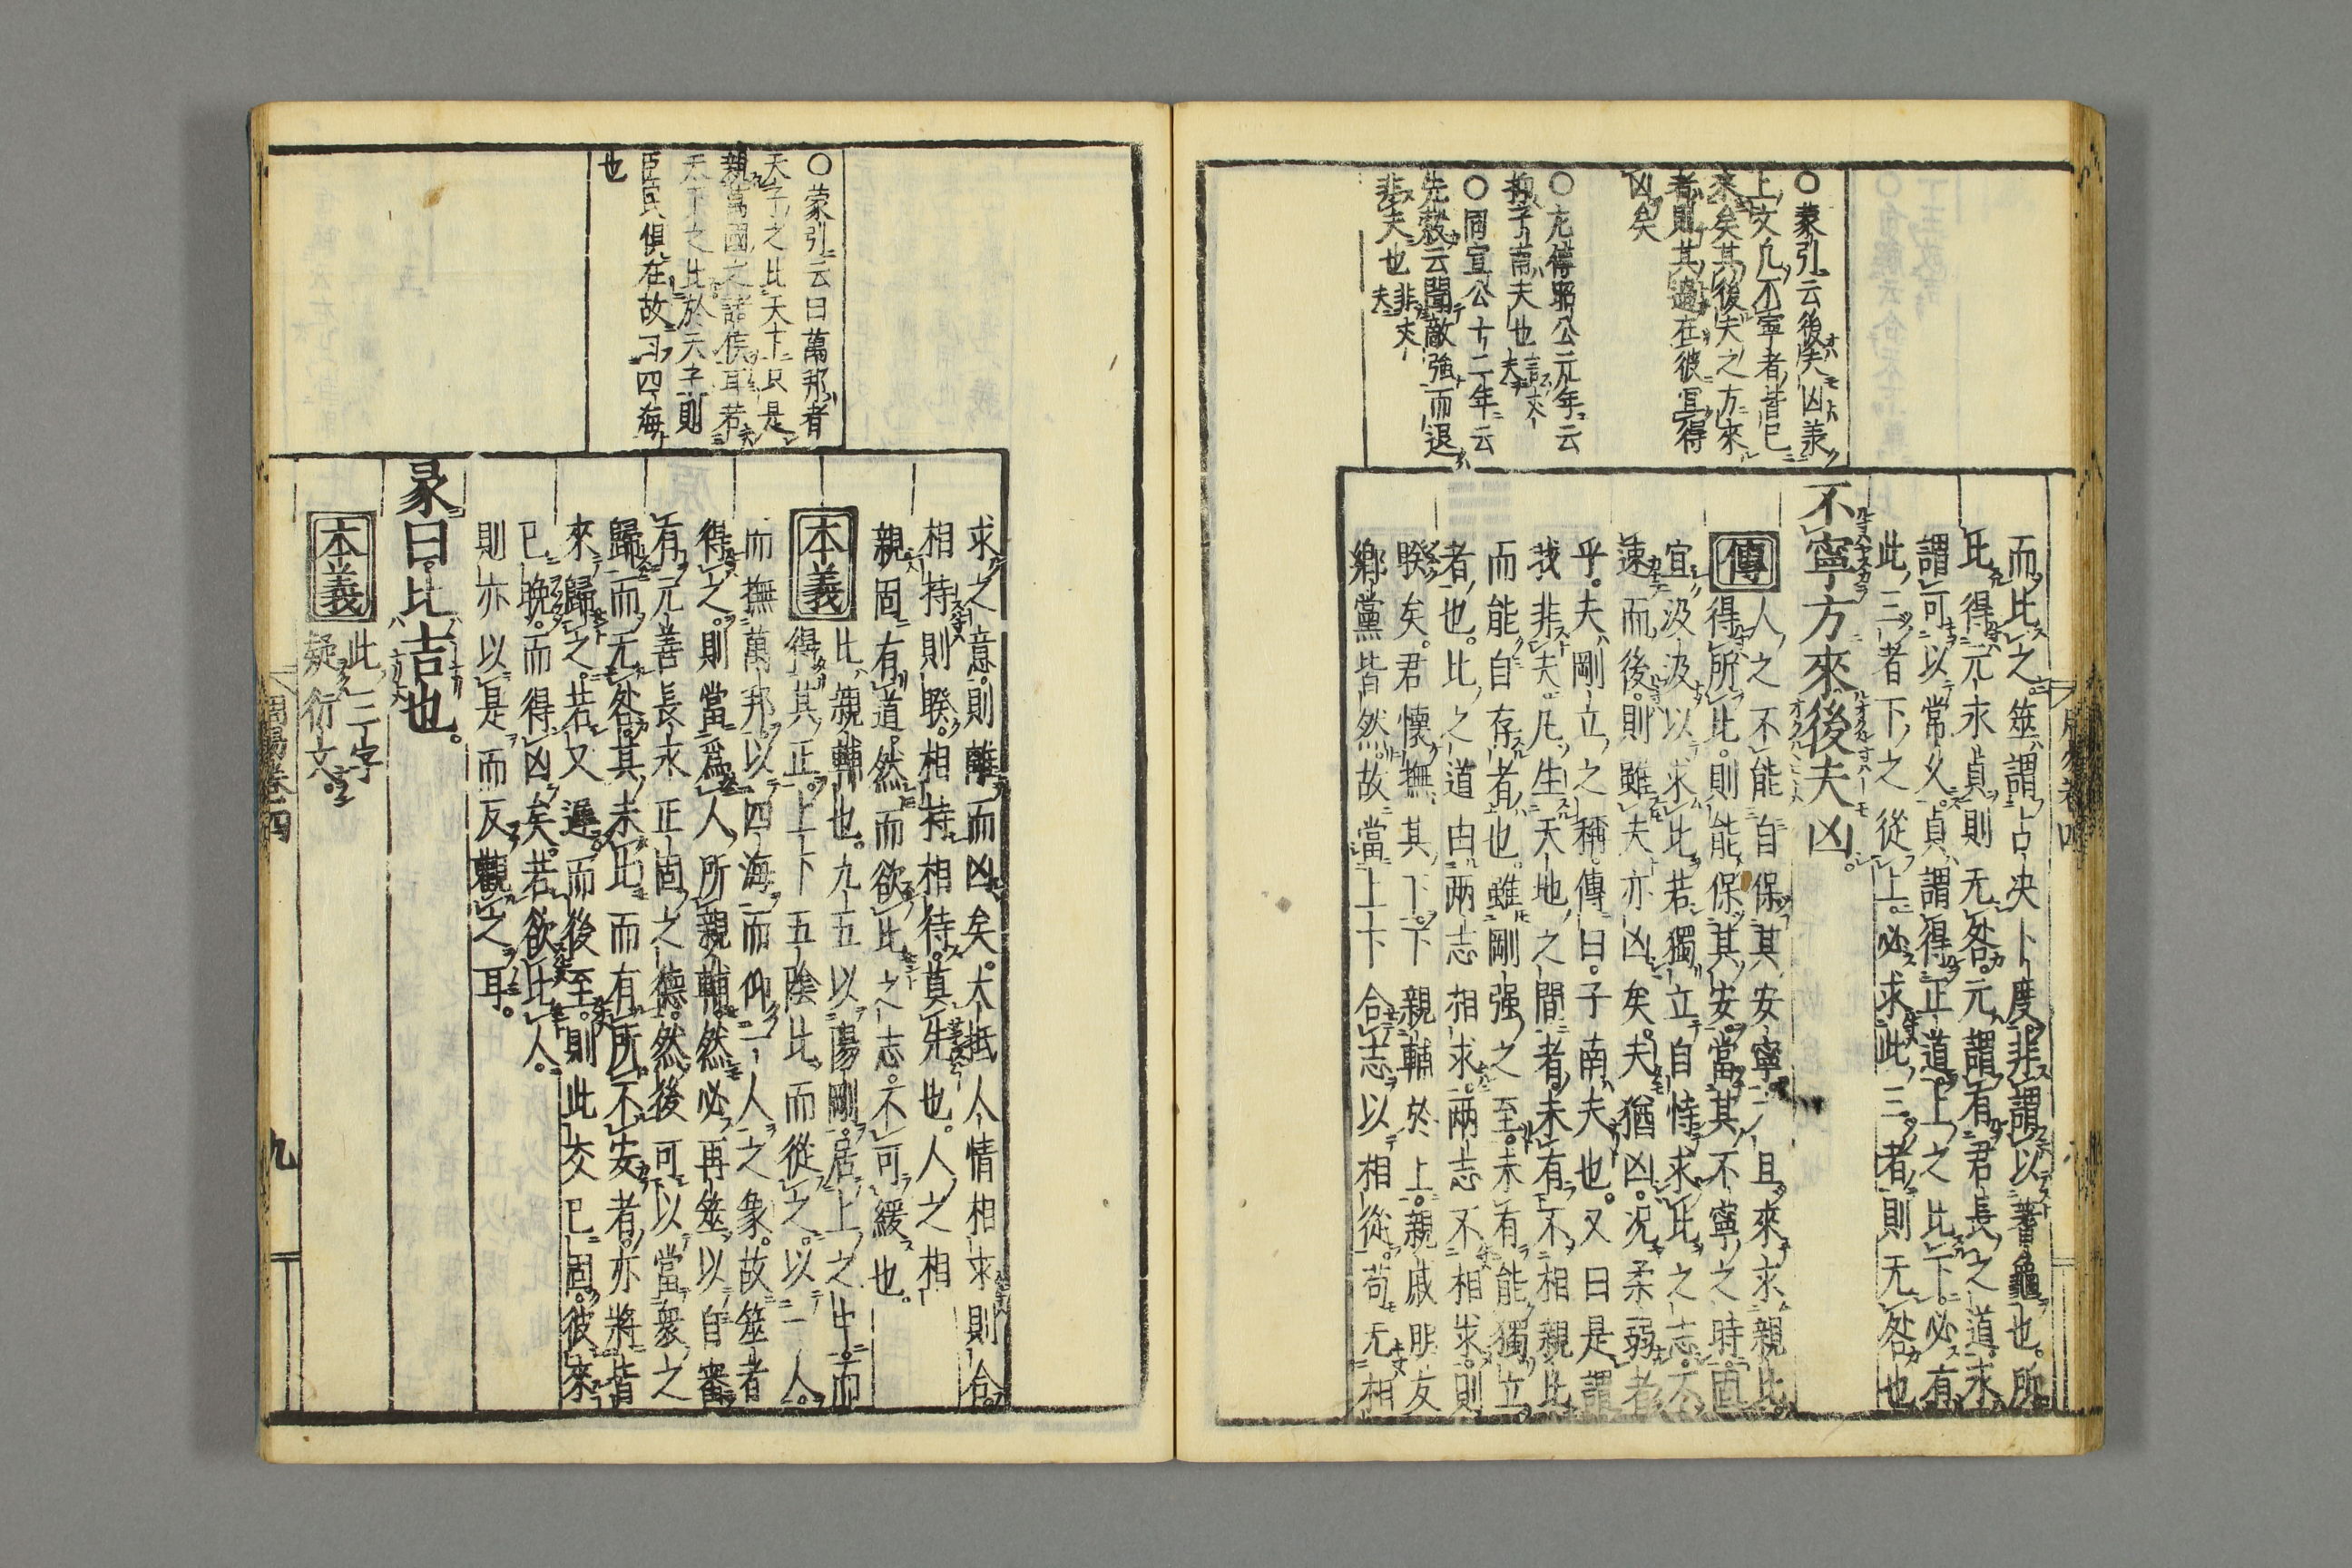 ○蒙引云後夫凶兼
上文凡不寧者皆已
來矣其後夫之方來
者則其過在彼宜得
凶矣
○左傳昭公元年云
抑子南夫也言丈夫
○同宣公十二年云
先縠云聞敵強而退
非夫也非丈夫
而比之筮謂占决卜度非謂以蓍龜也所
比得元永貞則无咎元謂有君長之道永
謂可以常久貞謂得正道上之比下必有
此三者下之從上必求此三者則无咎也
不寧方來後夫凶
傳
人之不能自保其安寧方且來求親比
得所比則能保其安當其不寧之時固
宜汲汲以求比若獨立自恃求比之志不
速而後則雖夫亦凶矣夫猶凶况柔弱者
乎夫剛立之稱傳曰子南夫也又曰是謂
我非夫凡生天地之間者未有不相親比
而能自存者也雖剛强之至未有能獨立
者也比之道由兩志相求兩志不相求則
睽矣君懷撫其下下親輔於上親戚朋友
鄉黨皆然故當上下合志以相從苟无相
○蒙引云曰萬邦者
天子之比天下只是
親萬國之諸侯耳若
天下之比於天子則
臣民俱在故曰四海
也
求之意則離而凶矣大抵人情相求則合
相持則睽相持相待莫先也人之相
親固有道然而欲比之志不可緩也
本義
比親輔也九五以陽剛居上之中而
得其正上下五陰比而從之以一人
而撫萬邦以四海而仰一人之象故筮者
得之則當爲人所親輔然必再筮以自審
有元善長永正固之德然後可以當衆之
歸而无咎其未比而有所不安者亦將皆
來歸之若又遲而後至則此交已固彼來
已晚而得凶矣若欲比人
則亦以是而反觀之耳
彖曰比吉也
本義
此三字
疑衍文
周易卷四
九